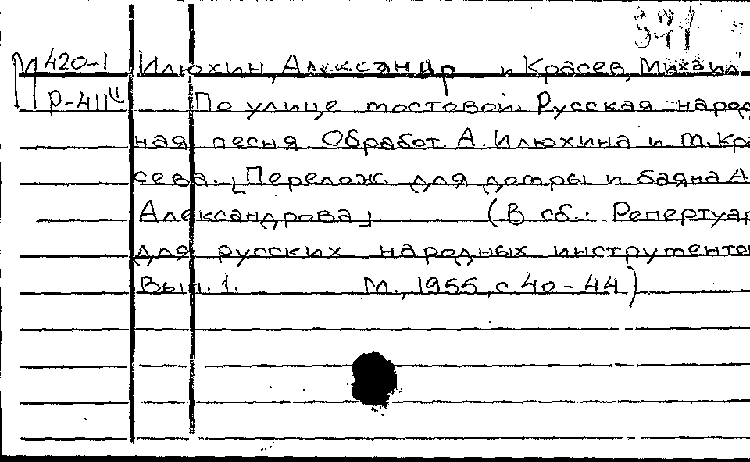 591
П 420-1 Илюхин, Александр и Красев, Михаил
Р-411 По улице мостовой. Русская народ-
ная песня. Обработ. А. Илюхина и М. Кра-
сева. [Перелож. для домры и баяна А.
Александрова] (В сб.: Репертуар
для русских народных инструментов
Вып. 1. М., 1955, с. 40-44)